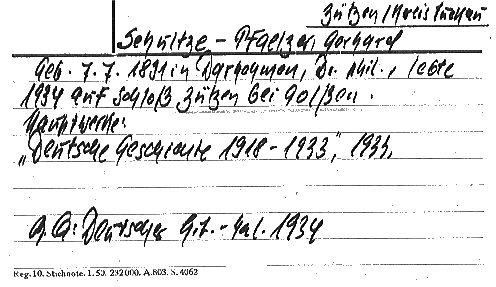 Zützen / Kreis Luckau
Schultze - Pfaelzer, Gerhard
Geb. 7. 7. 1891 in Darkehmen, Dr. phil., lebte
1934 auf Schloß Zützen bei Golßen.
Hauptwerke:
„Deutsche Geschichte 1918 - 1933", 1933.
A. Q.: Deutscher Lit. - Kal. 1934
Reg. 10. Stichnote. 1. 50. 232000. A.803. S. 4062